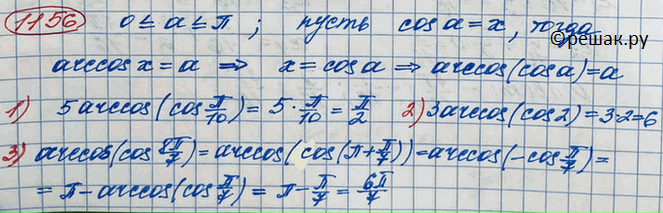 1156 0 ≤ a ≤ π ; пусть cos a = x, тогда
©решак.ру
arccos x = a ⇒ x = cos a ⇒ arccos(cos a) = a
1) 5 arccos(cos π/10) = 5 · π/10 = π/2 2) 3 arccos(cos 2) = 3·2 = 6
3) arccos(cos 8π/7) = arccos(cos(π + π/7)) = arccos(-cos π/7) =
= π - arccos(cos π/7) = π - π/7 = 6π/7